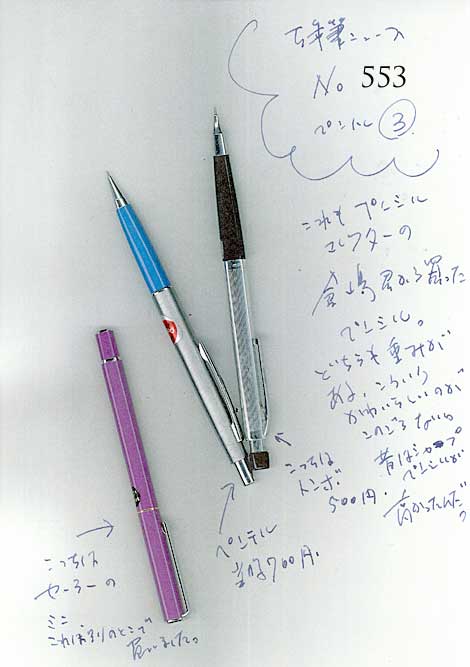 ニュース
No 553
ペンテル ③
これも ペンシル
コレクターの
倉嶋君から買った
ペンシル。
どちらも重みが
ある、こういう
かわいらしいのが
このごろない。
昔はシャープ
ペンシルが
高かったんだ。
こっちは
トンボ
500円.
ペンテル
700円.
こっちは
セーラーの
ミニ.
買いました。